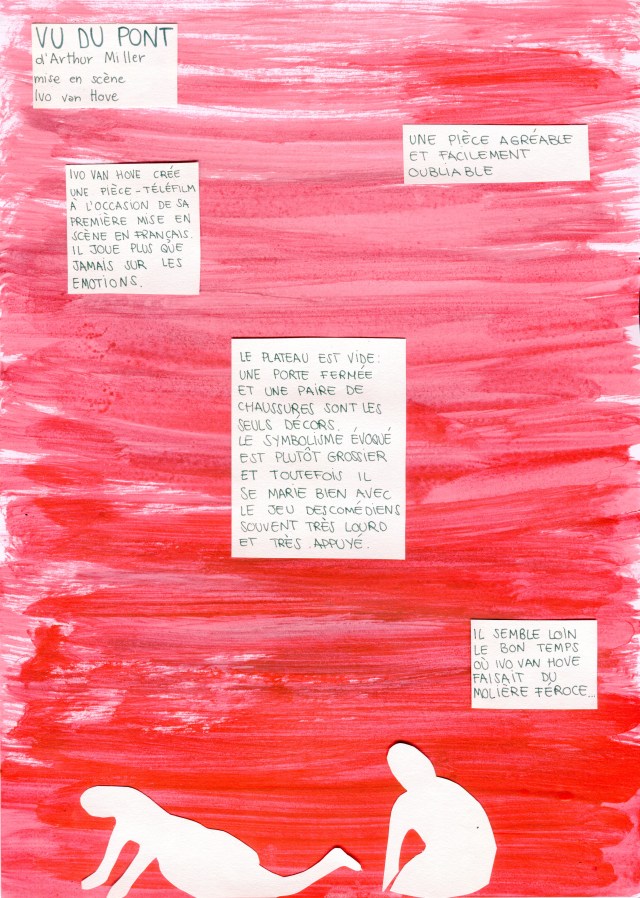 VU DU PONT
d'Arthur Miller
mise en scène
Ivo van Hove
UNE PIÈCE AGRÉABLE
ET FACILEMENT
OUBLIABLE
IVO VAN HOVE CRÉE
UNE PIÈCE-TÉLÉFILM
À L'OCCASION DE SA
PREMIÈRE MISE EN
SCÈNE EN FRANÇAIS.
IL JOUE PLUS QUE
JAMAIS SUR LES
EMOTIONS.
LE PLATEAU EST VIDE:
UNE PORTE FERMÉE
ET UNE PAIRE DE
CHAUSSURES SONT LES
SEULS DÉCORS.
LE SYMBOLISME ÉVOQUÉ
EST PLUTÔT GROSSIER
ET TOUTEFOIS IL
SE MARIE BIEN AVEC
LE JEU DES COMÉDIENS
SOUVENT TRÈS LOURD
ET TRÈS APPUYÉ.
IL SEMBLE LOIN
LE BON TEMPS
OÙ IVO VAN HOVE
FAISAIT DU
MOLIÈRE FÉROCE...